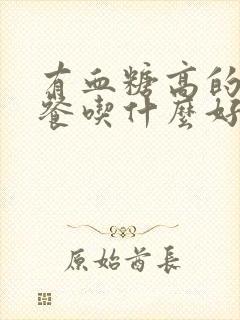 有血糖高的
餐喫什麼好
原始酋長